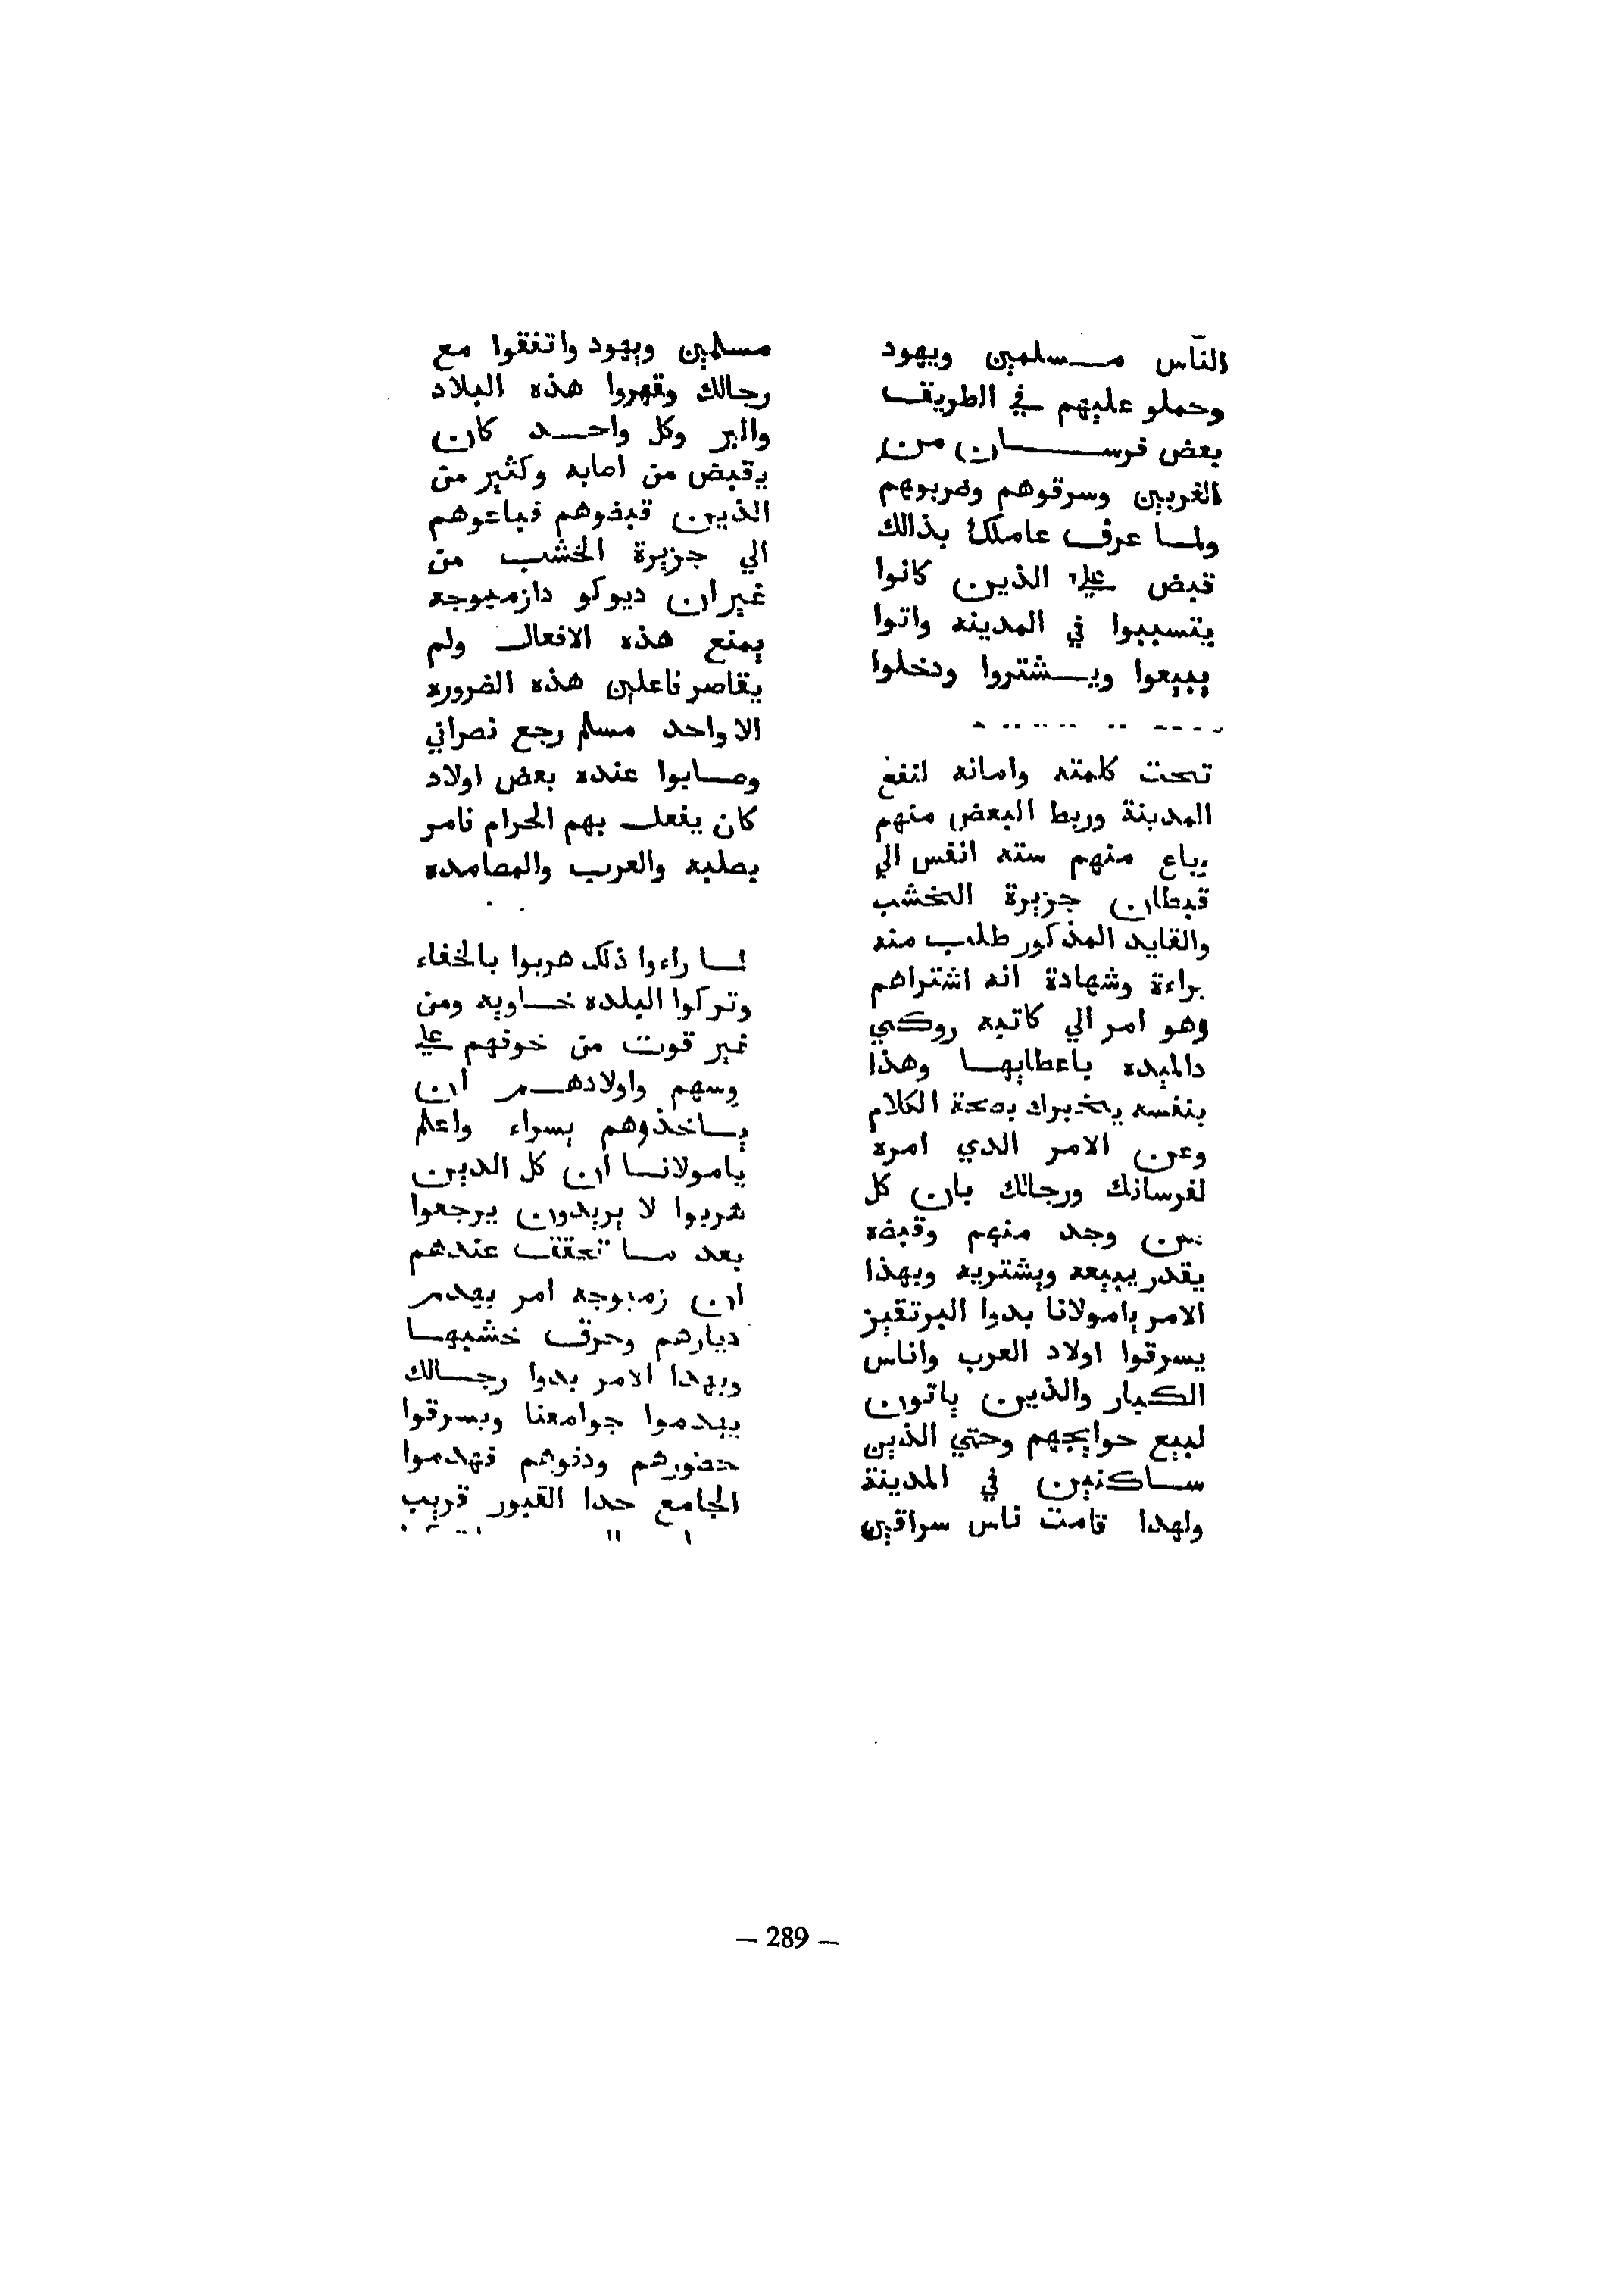 النّاس مسلمين ويهود
وحملو عليهم في الطريق
بعض فرسان من
الغربيين وسرقوهم وضربوهم
ولما عرف عاملك بذالك
قبض علي الذين كانوا
يتسببوا في المدينه واتوا
يبيعوا ويشتروا ودخلوا
تحت كلمته وامانه لنفع
المدينة وربط البعض منهم
وباع منهم سته انفس الي
قبطان جزيرة الخشب
والقايد المذكور طلب منه
براءة وشهادة انه اشتراهم
وهو امر الي كاتبه روكي
دالميده باعطايها وهذا
بنفسه يخبرك بصحة الكلام
وعن الامر الدي امره
لفرسانك ورجالك بان كل
من وجد منهم وقبضه
يقدر يبيعه ويشتريه وبهذا
الامر يامولانا بدوا البرتقيز
يسرقوا اولاد العرب واناس
الكبار والذين ياتون
لبيع حوايجهم وحتي الذين
ساكنين في المدينة
ولهدا قامت ناس سراقين
مسلمين ويهود واتفقوا مع
رجالك وقهروا هذه البلاد
والبر وكل واحد كان
يقبض من اصابه وكثير من
الذين قبضوهم فباعوهم
الي جزيرة الخشب من
غيران ديوكو دازمبوجه
يمنع هذه الافعال ولم
يقاصر فاعلين هذه الضروره
الا واحد مسلم رجع نصراني
وصابوا عنده بعض اولاد
كان يفعل بهم الحرام فامر
بصلبه والعرب والمصامده
لما راءوا ذلك هربوا بالخفاء
وتركوا البلده خاويه ومن
غير قوت من خوفهم علي
وسهم واولادهم ان
ياخذوهم يسراء واعلم
يامولانا ان كل الدين
هربوا لا يريدون يرجعوا
بعد ما تحقق عندهم
ان زمبوجه امر بهدم
ديارهم وحرق خشبها
وبهدا الامر بدوا رجالك
يهدموا جوامعنا ويسرقوا
حضورهم ودفوفهم فهدموا
الجامع حدا القبور قريب
— 289 —